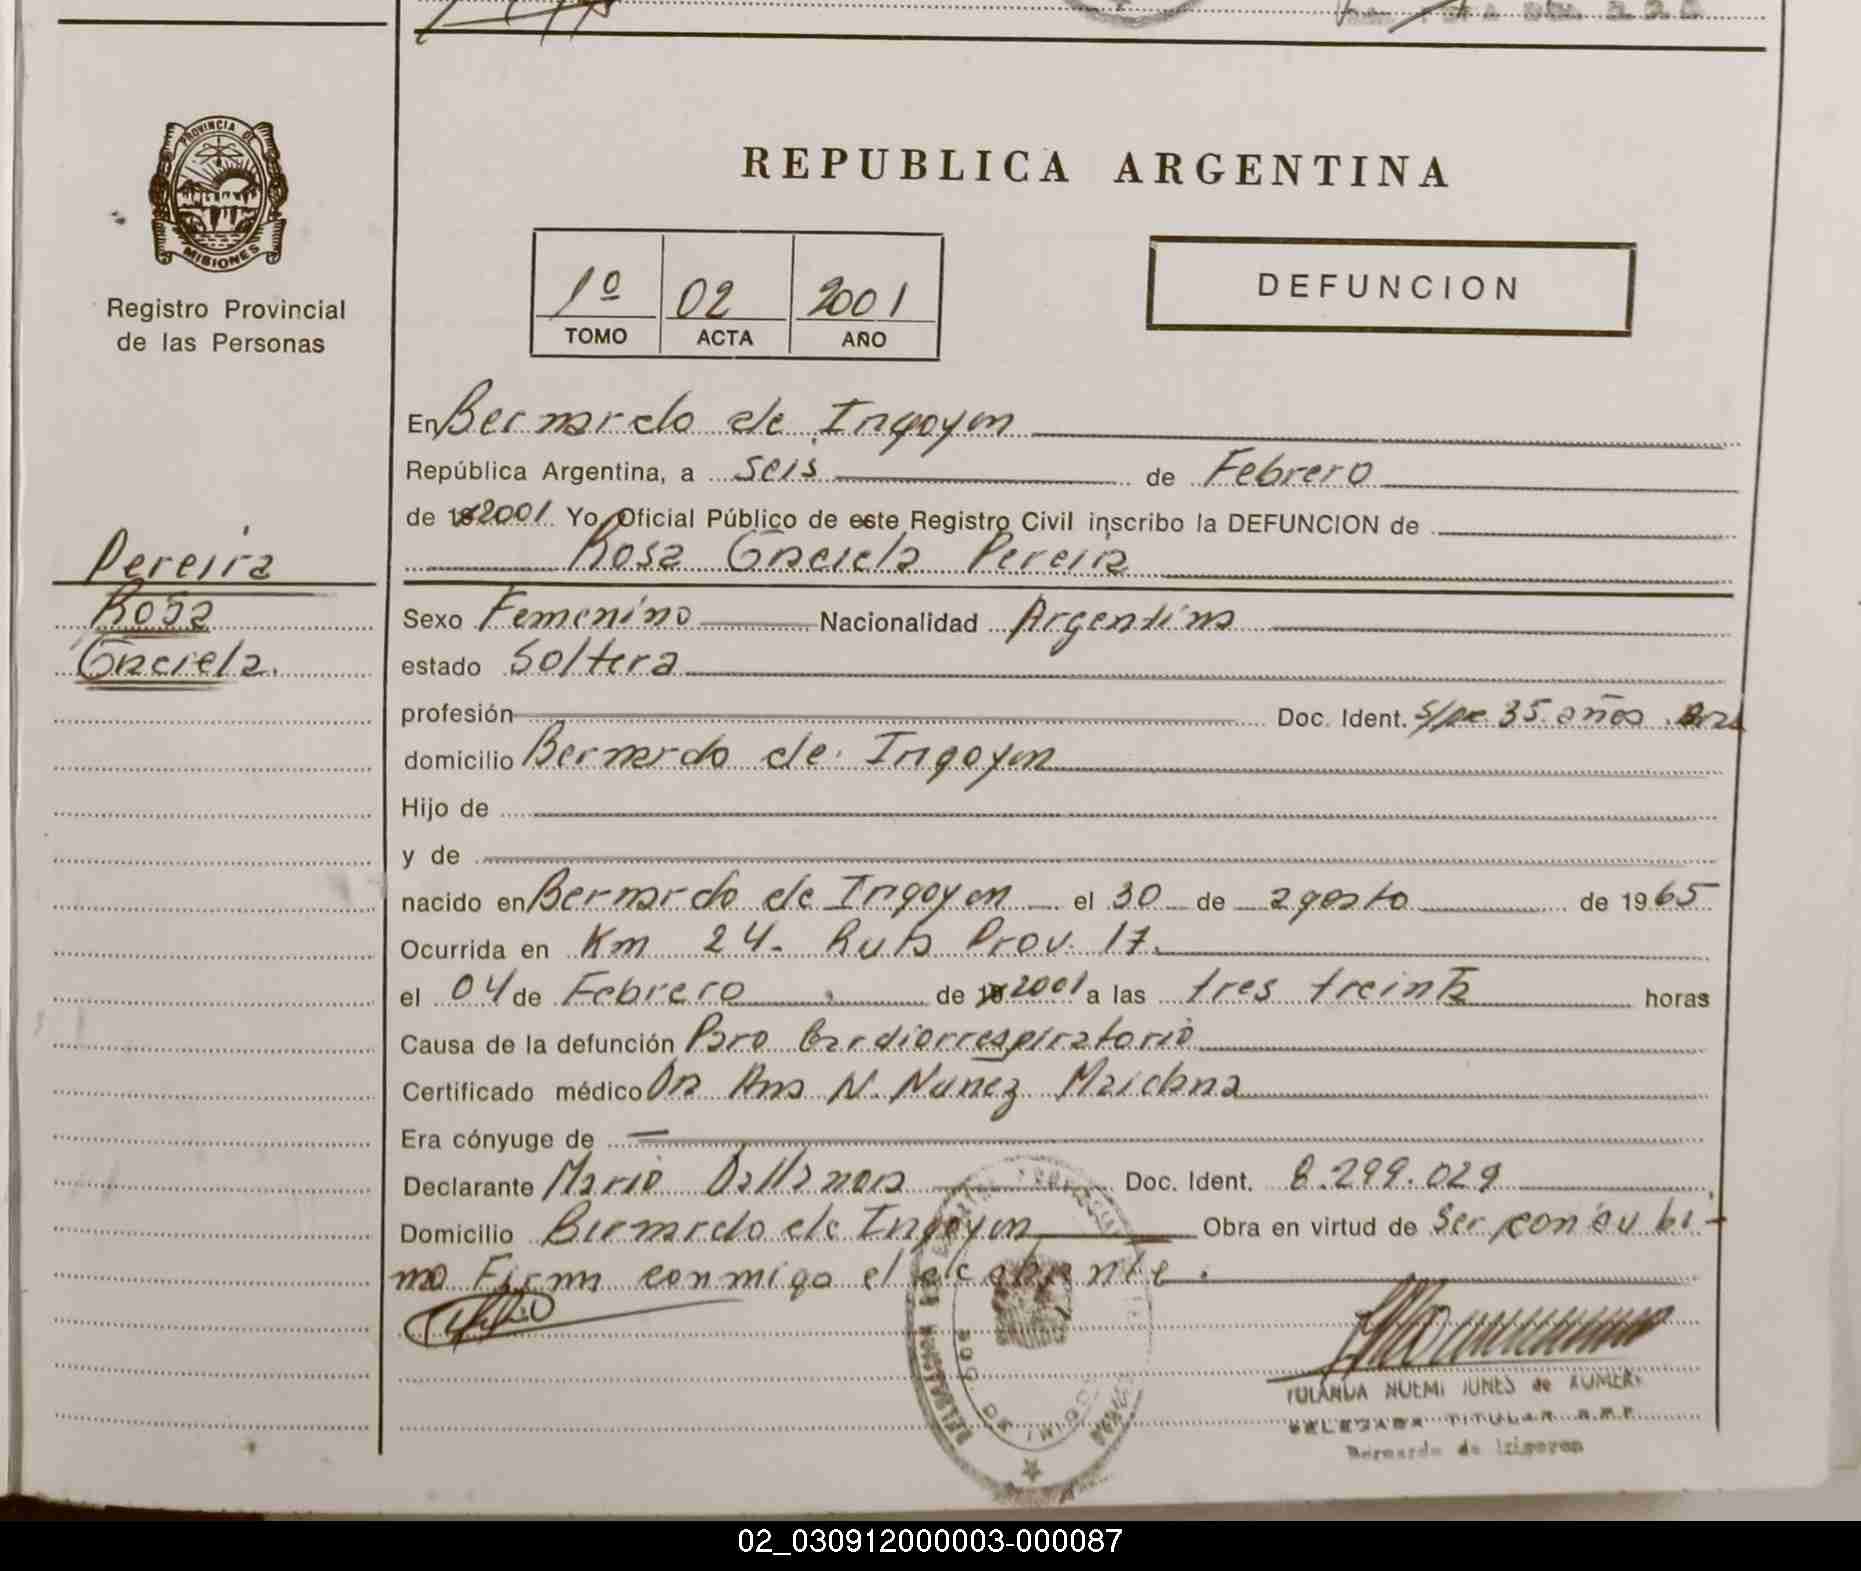 REPUBLICA ARGENTINA
PROVINCIA DE
MISIONES
Registro Provincial
de las Personas
1º 02 2001
TOMO ACTA AÑO
DEFUNCION
Pereira
Rosa
Graciela.
En Bernardo de Irigoyen
República Argentina, a seis de Febrero
de 2001 Yo, Oficial Público de este Registro Civil inscribo la DEFUNCION de
Rosa Graciela Pereira
Sexo Femenino Nacionalidad Argentina
estado Soltera
profesión Doc. Ident. 35 años
domicilio Bernardo de Irigoyen
Hijo de
y de
nacido en Bernardo de Irigoyen el 30 de agosto de 1965
Ocurrida en Km 24. Ruta Prov. 17.
el 04 de Febrero de 2001 a las tres treinta horas
Causa de la defunción Paro Cardiorrespiratorio
Certificado médico Dra Ana N. Nuñez Maidana
Era cónyuge de
Declarante Mario Doc. Ident. 8.299.029
Domicilio Bernardo de Irigoyen Obra en virtud de Ser concubi-
no Firma conmigo el
YOLANDA NOEMI de
DELEGADA TITULAR R.P.P.
Bernardo de Irigoyen
02_030912000003-000087